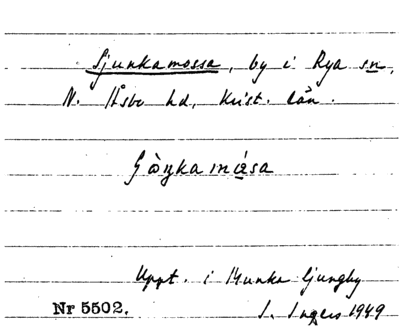 Sjunkamossa, by i Rya sn,
N. Åsbo hd, Krist. län.
Uppt. i Munka Ljungby
Nr 5502. I. Ingers 1949